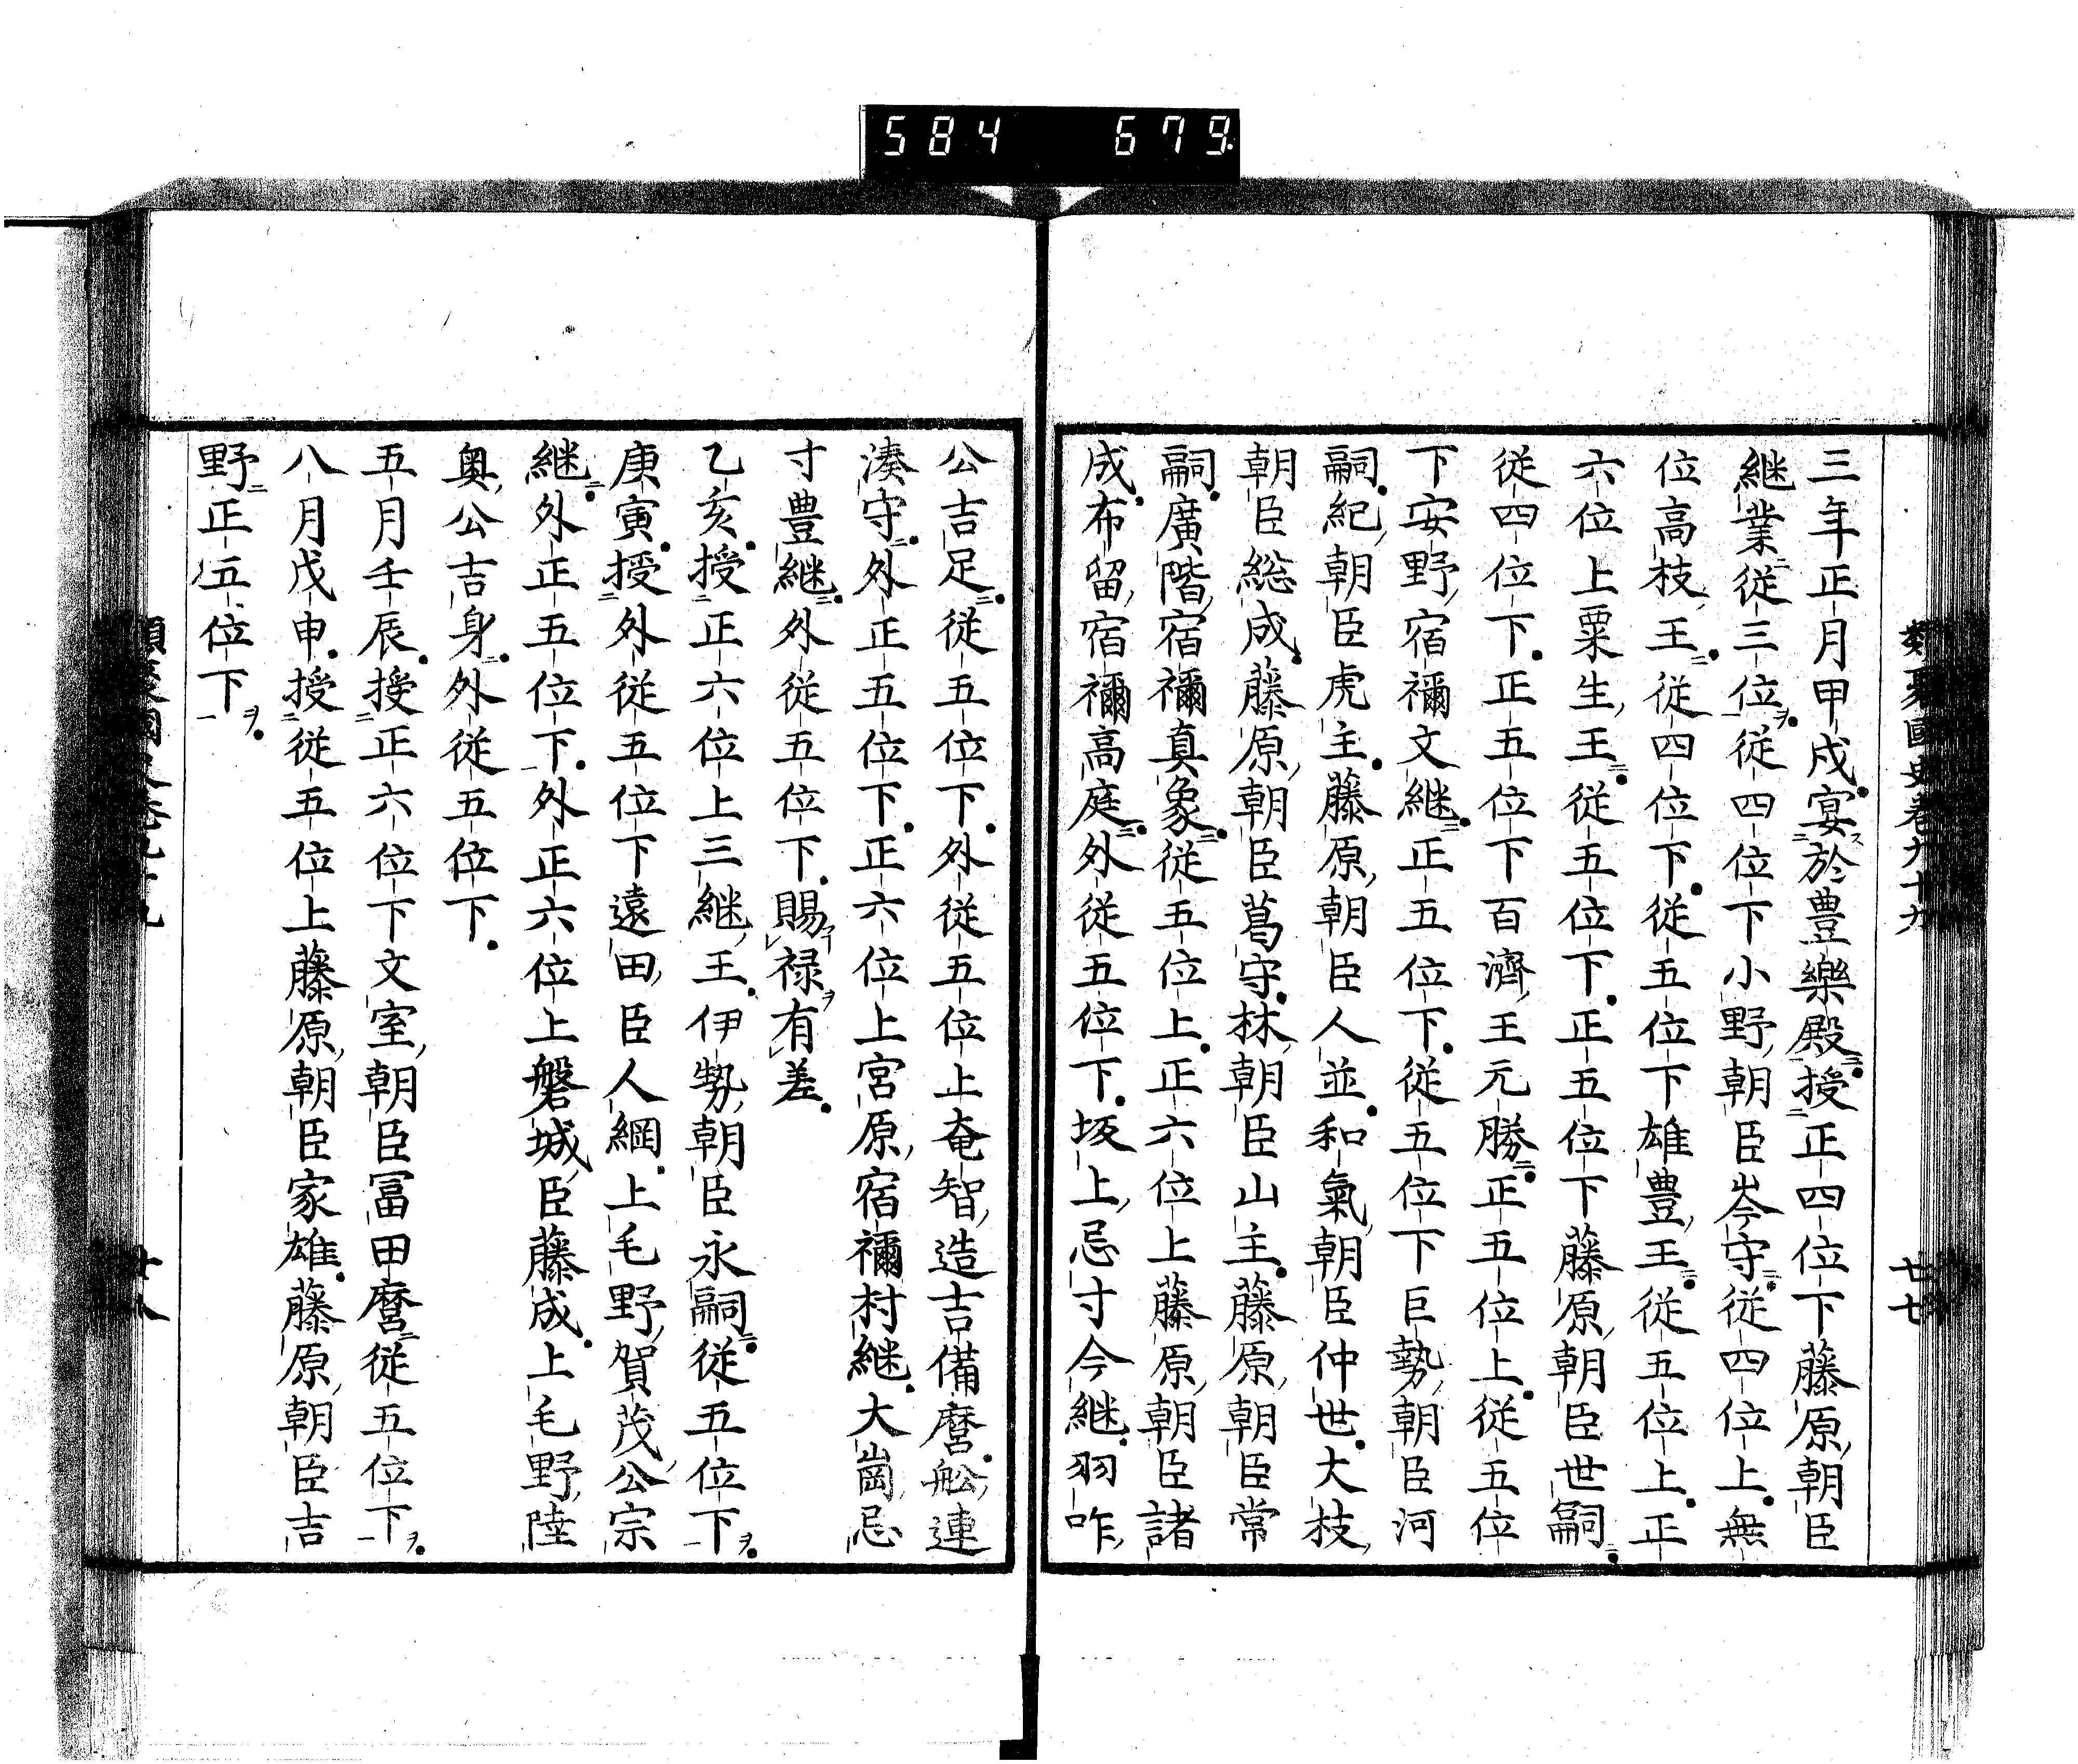 584 679
類聚國史卷九十九
廿七
三年正月甲戌宴於豊樂殿授正四位下藤原朝臣
継業従三位従四位下小野朝臣岑守従四位上無
位高枝王従四位下従五位下雄豊王従五位上正
六位上粟生王従五位下正五位下藤原朝臣世嗣
従四位下正五位下百濟王元勝正五位上従五位
下安野宿禰文継正五位下従五位下巨勢朝臣河
嗣紀朝臣虎主藤原朝臣人並和氣朝臣仲世大枝
朝臣総成藤原朝臣葛守林朝臣山主藤原朝臣常
嗣廣階宿禰真象従五位上正六位上藤原朝臣諸
成布留宿禰高庭外従五位下坂上忌寸今継羽咋
公吉足従五位下外従五位上奄智造吉備麿舩連
湊守外正五位下正六位上宮原宿禰村継大崗忌
寸豊継外従五位下賜禄有差
乙亥授正六位上三継王伊勢朝臣永嗣従五位下
庚寅授外従五位下遠田臣人綱上毛野賀茂公宗
継外正五位下外正六位上磐城臣藤成上毛野陸
奥公吉身外従五位下
五月壬辰授正六位下文室朝臣冨田麿従五位下
八月戊申授従五位上藤原朝臣家雄藤原朝臣吉
野正五位下
類聚國史卷九十九
廿八